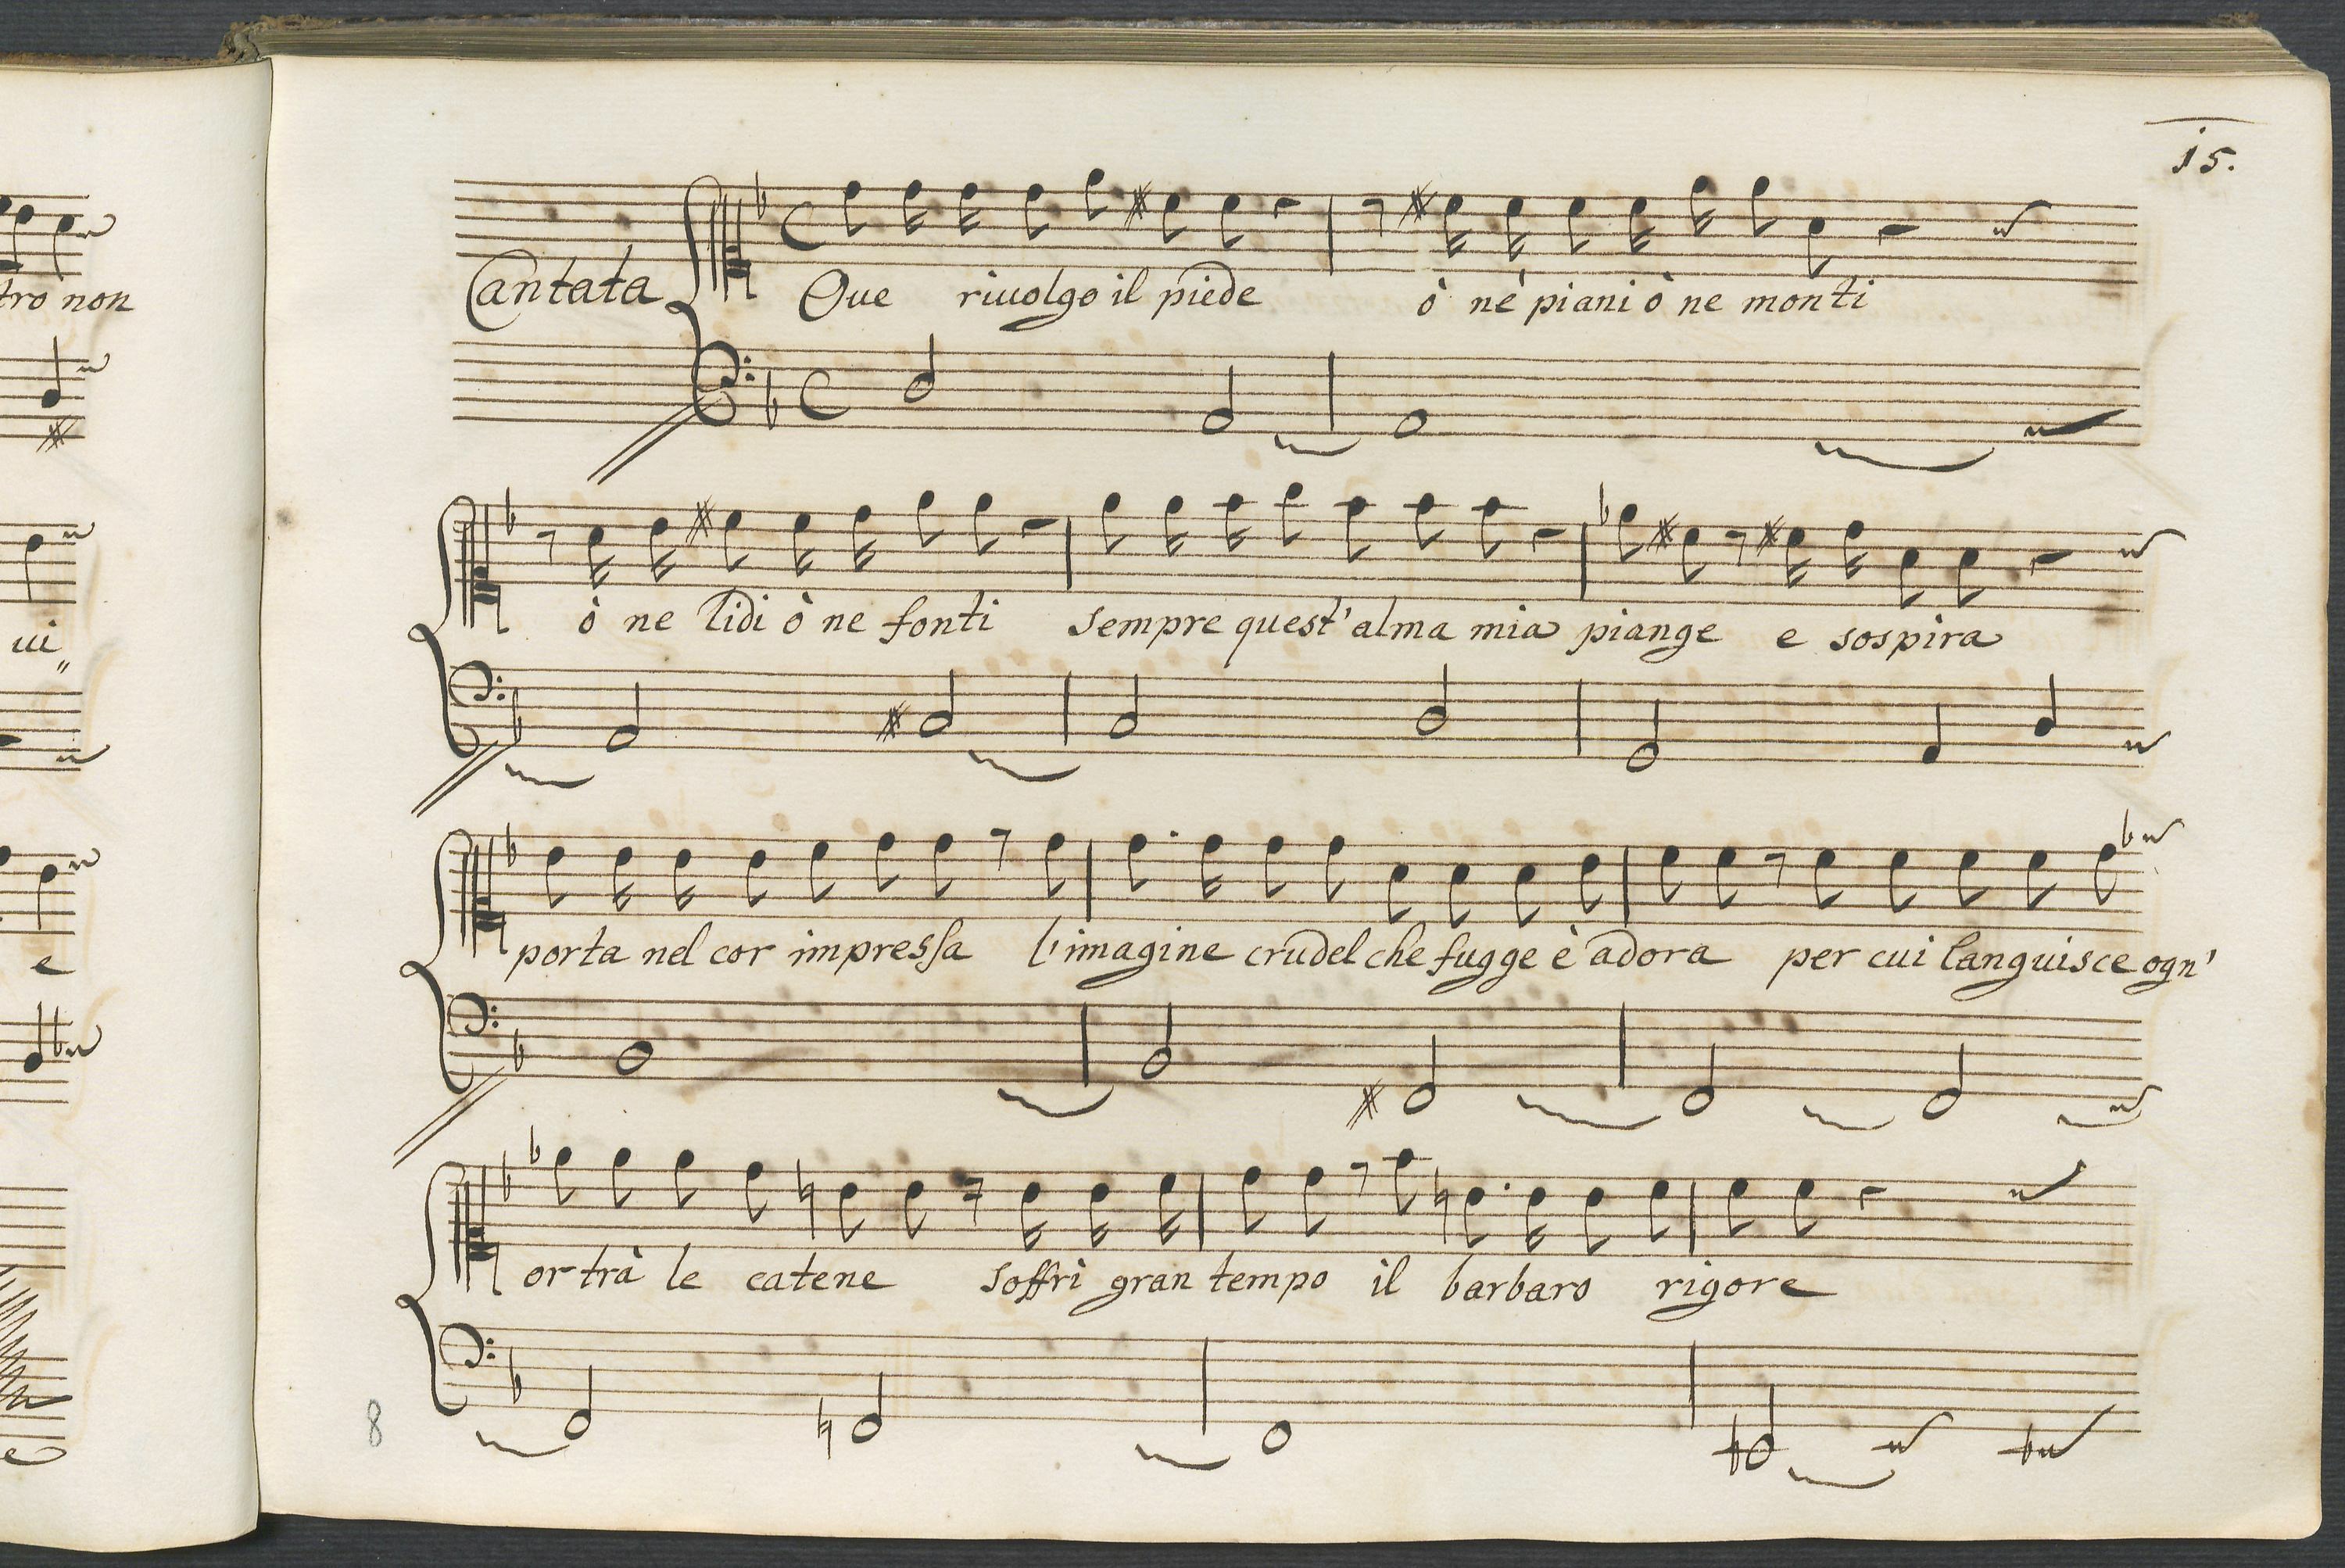 15.
tro non
Cantata Oue riuolgo il piede ò né piani ò ne monti
ui
ò ne lidi ò ne fonti sempre quest' alma mia piange e sospira
e
porta nel cor impressa l' imagine crudel che fugge è adora per cui languisce ogn'
or trà le catene soffrì gran tempo il barbaro rigore
8
e